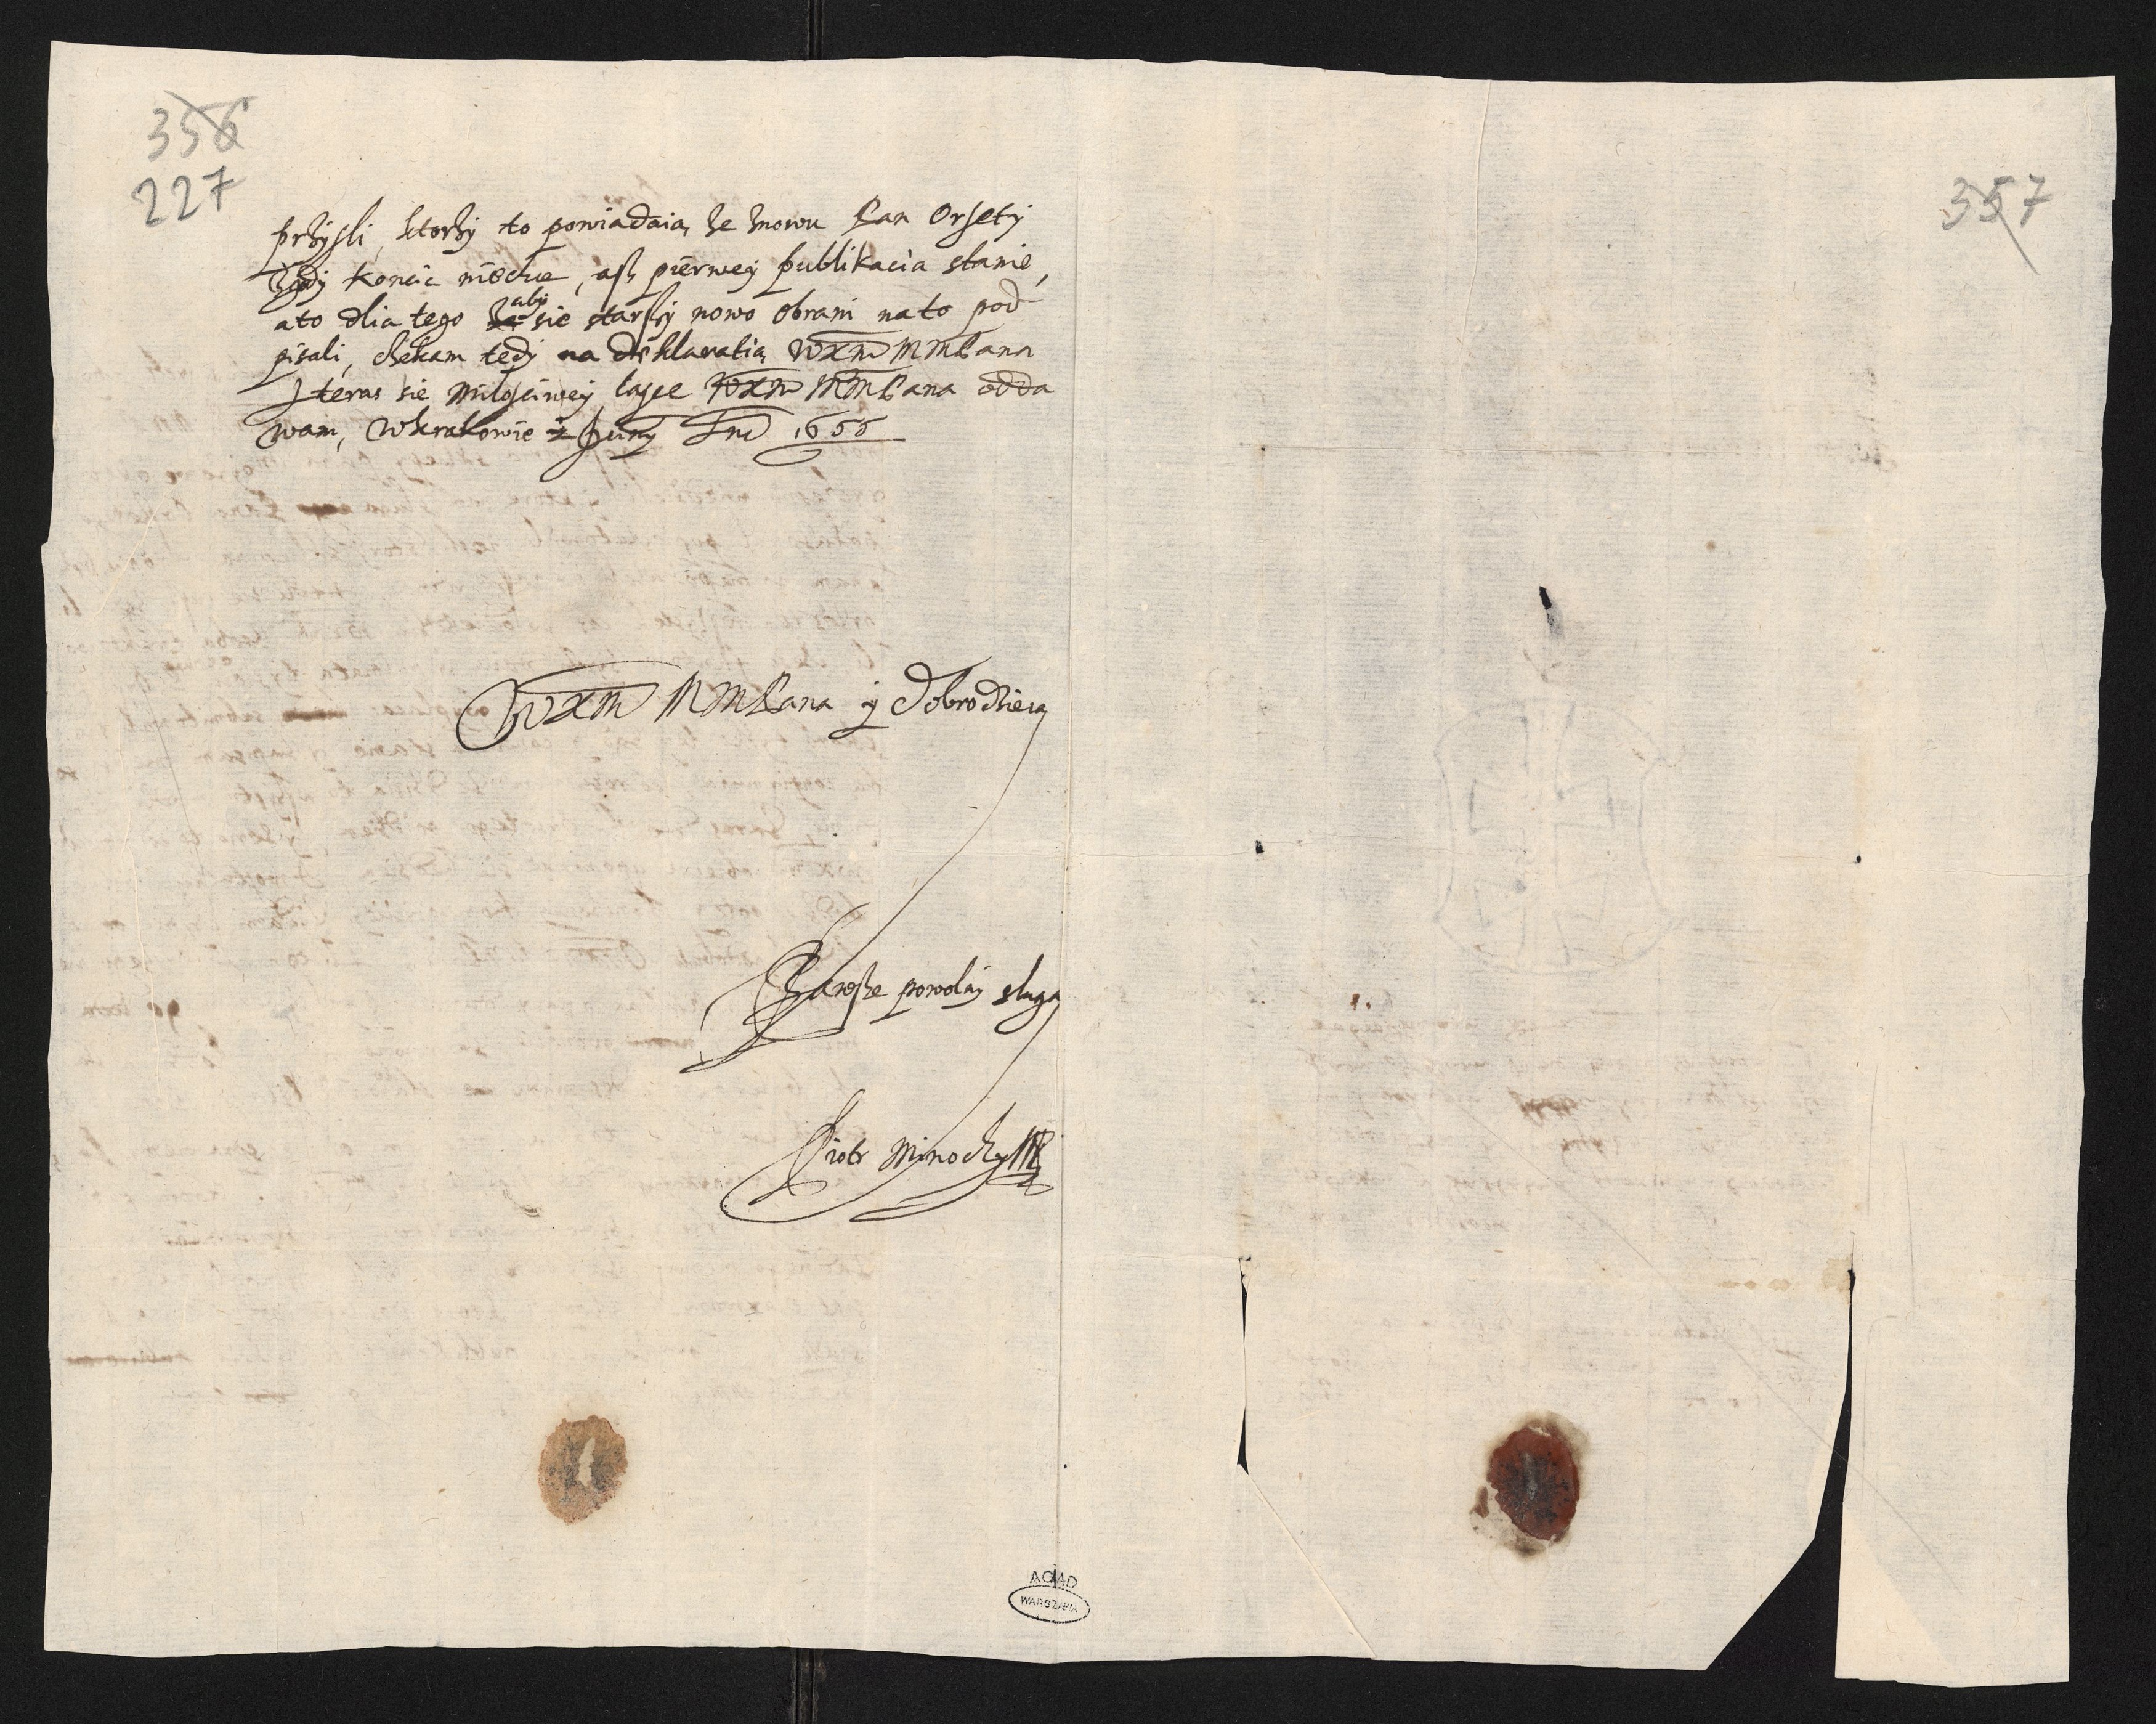 356
227
357
przysli, ktorzy to powiadaią ze znowu Pan Orsety
koncic niechce, asz pierwey publikacia stanie,
ato dlia tego aby sie starszy nowo obrani nato pod
pisali, czekam tedy na deklaratią WXM MMPana
J teras sie miłosciwey łasce WXM MMPana odda
wam, W Krakowie Juny 1655
WXM MMPana y Dobrodzieia
Zawsze powolny sługa
Piotr Minocky
AGAD
WARSZAWA